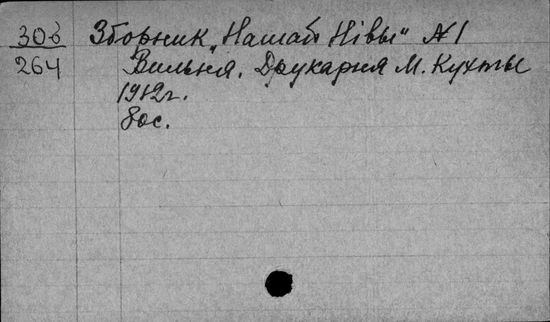 306 Зборник „Нашай Нівы" №1
264 Вильня. Друкарня М. Кухты
1912г.
80с.